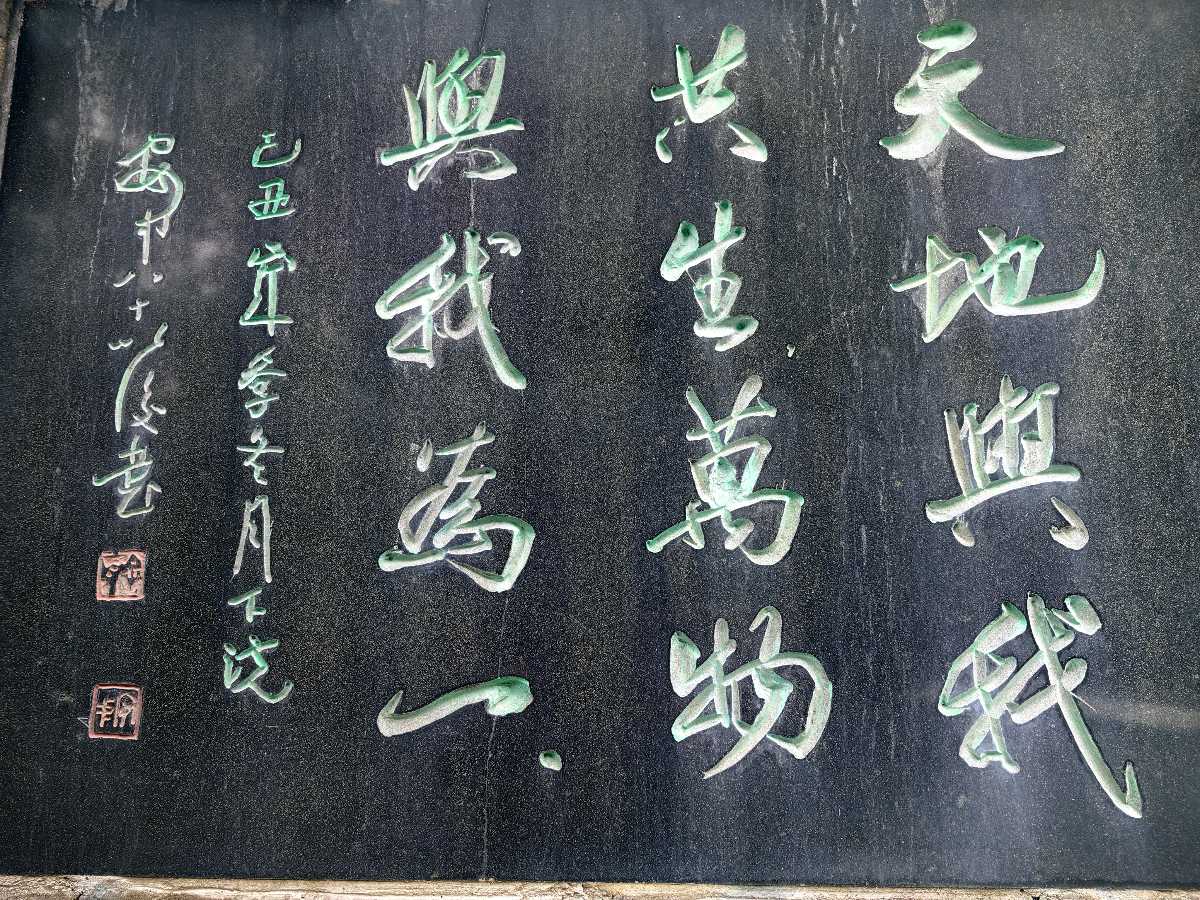 天地與我
共生萬物
與我為一
己丑年季冬月下浣
八十